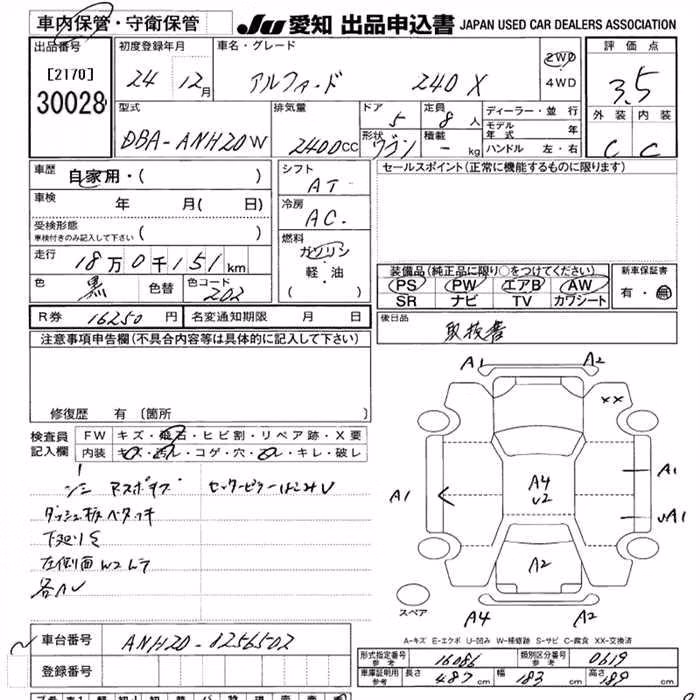 車内保管・守衛保管
JU 愛知 出品申込書 JAPAN USED CAR DEALERS ASSOCIATION
出品番号
[2170]
30028
初度登録年月
24 12月
車名・グレード
アルファード 240 X
2WD
4WD
評価点
3.5
外装 内装
C C
型式
DBA-ANH20W
排気量
2400cc
ドア 5
定員 8人
形状 ワゴン
積載 - kg
ディーラー・並行
モデル年式 年
ハンドル 左・右
車歴 自家用・( )
車検 年 月( 日)
受検形態
車検付きのみ記入して下さい ( )
走行 18万0千151km
色 黒 色替 色コード 202
シフト
AT
冷房
AC.
燃料
ガソリン
・
軽・油
( )
セールスポイント(正常に機能するものに限ります)
装備品(純正品に限り○をつけてください)
PS PW エアB AW
SR ナビ TV カワシート
新車保証書
有・無
R券 16250円 名変通知期限 月 日
後日品
取扱書
注意事項申告欄(不具合内容等は具体的に記入して下さい)
修復歴 有 〔箇所
検査員
記入欄
FW キズ・飛石・ヒビ割・リペア跡・X要
内装 キズ・汚レ・コゲ・穴・スレ・キレ・破レ
ダッシュ板ベタツキ
下廻りS
左側面W2
各AU
A1 A2
XX
A1
A1
A4
U2
UA1
A2
スペア
A4 A2
A-キズ E-エクボ U-凹み W-補修跡 S-サビ C-腐食 XX-交換済
車台番号 ANH20-8256502
登録番号
形式指定番号 参考 16086 類別区分番号 参考 0619
車庫証明用 参考 長さ 487cm 幅 183cm 高さ 189cm